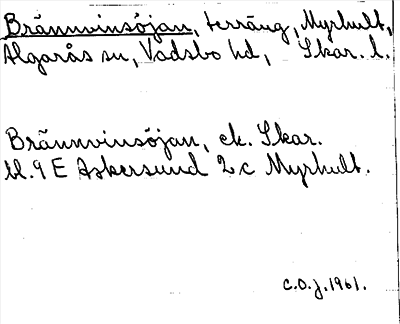 Brännvinsöjan, terräng, Myrhult,
Älgarås sn, Vadsbo hd, Skar. l.
Brännvinsöjan, ek. Skar.
bl. 9 E Askersund 2c Myrhult.
C.O.J. 1961.